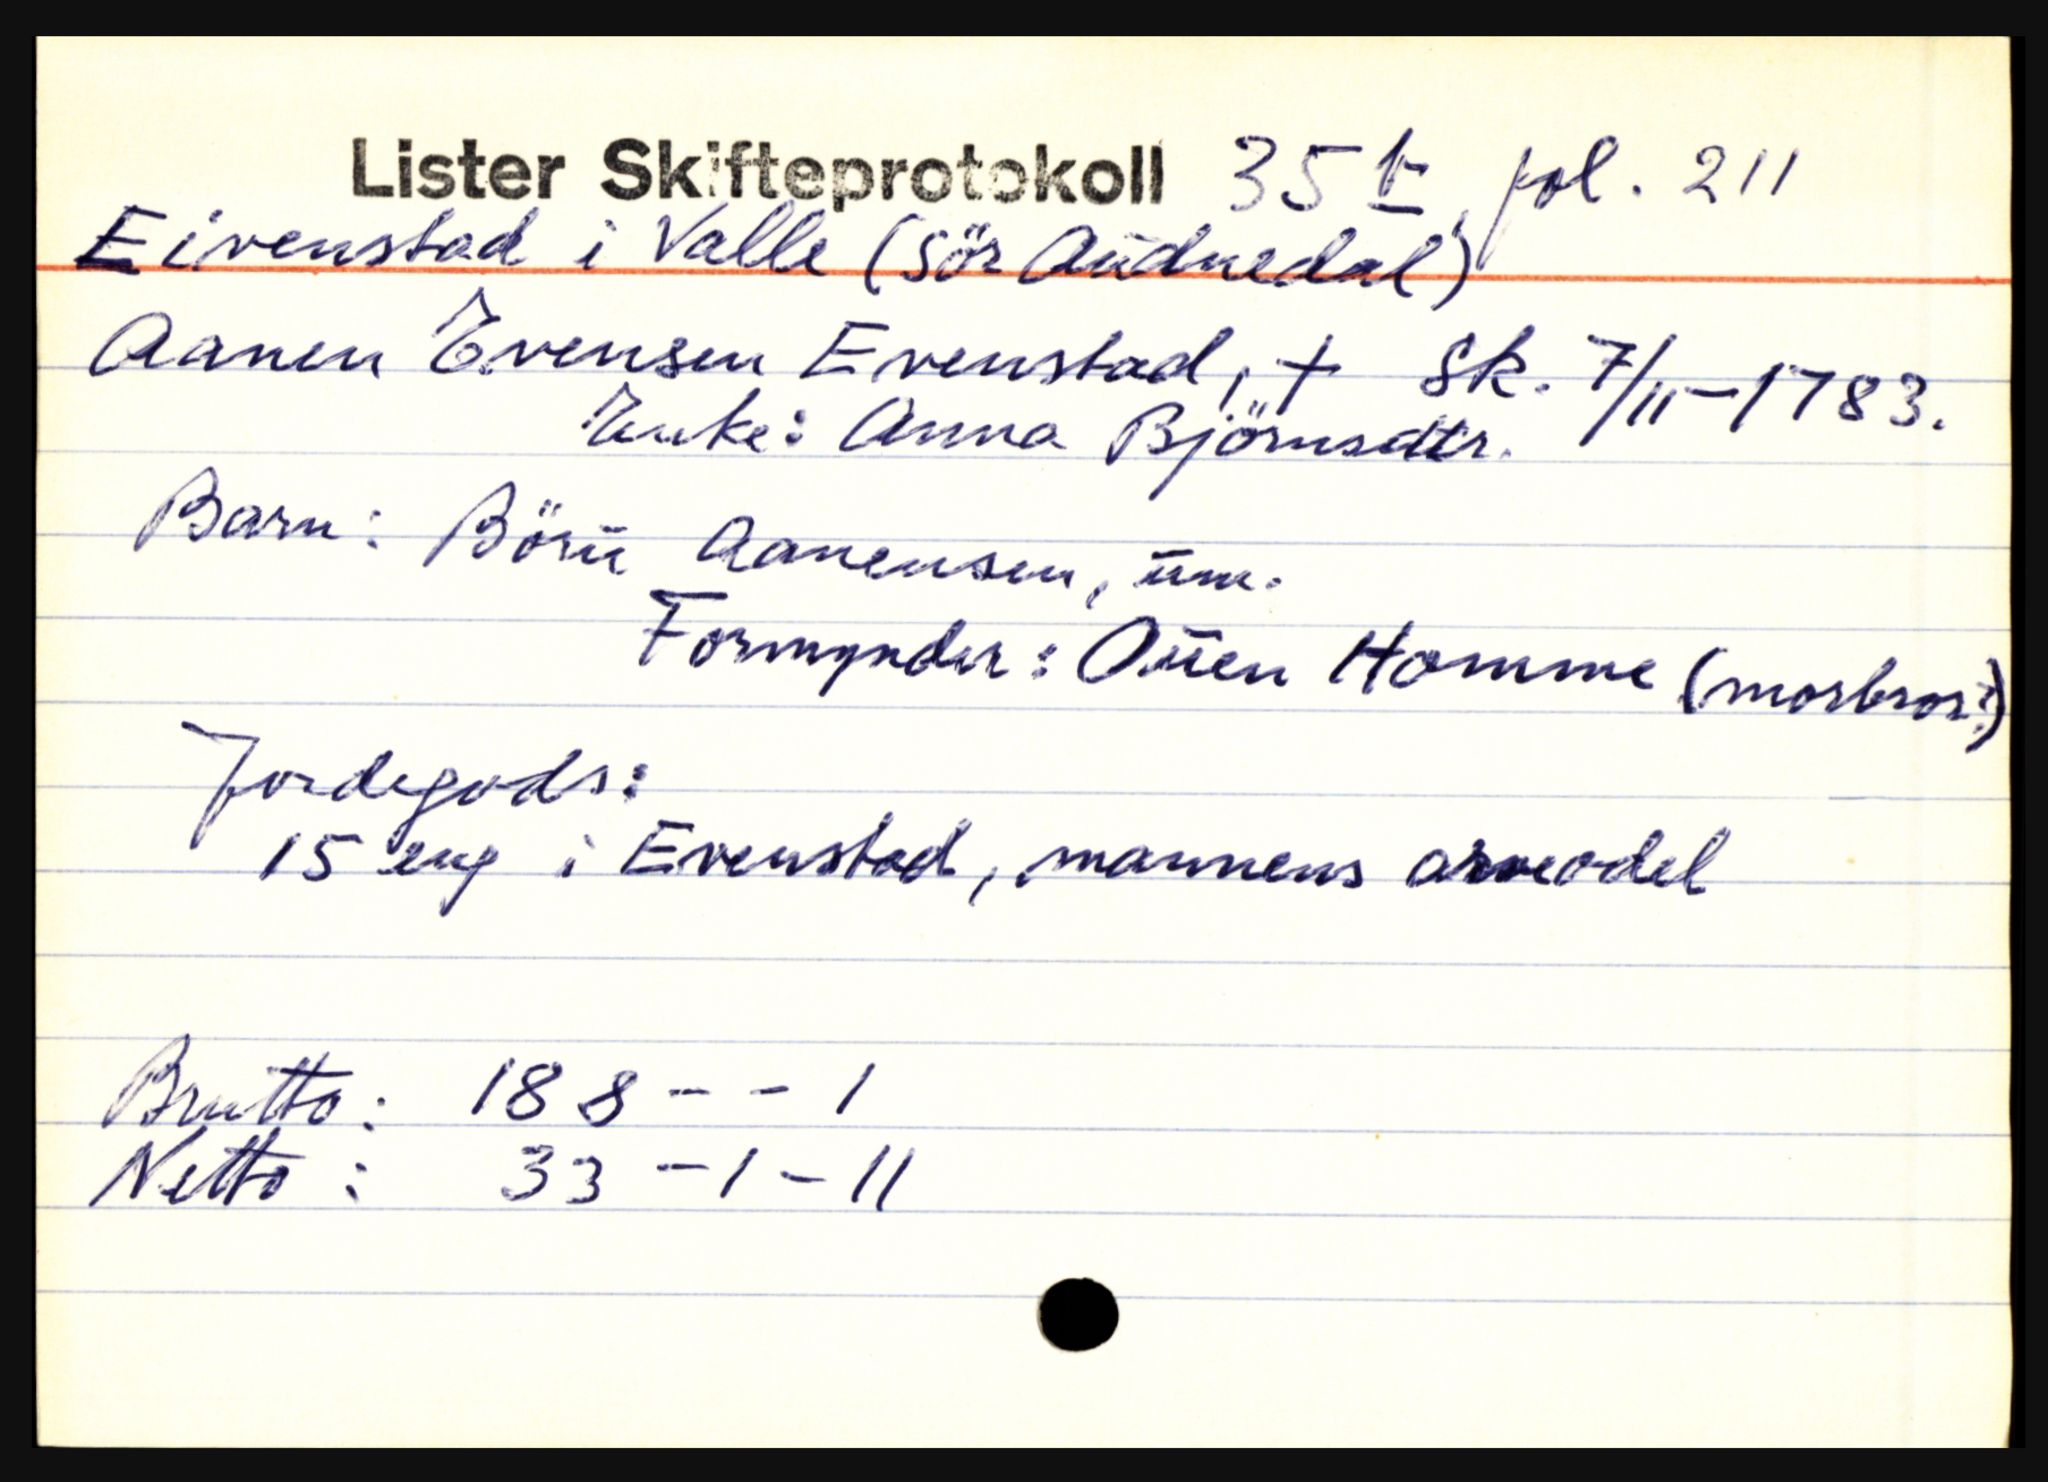 Lister Skifteprotokoll 35 b, fol. 211
Eivenstad i Valle (Sör Audnedal)
Aanen Evensen Evenstad, + Sk. 7/11-1783.
Enke: Anna Björnsdtr.
Barn: Börü Aanensen, üm.
Formynder: Oüen Homme (morbror?)
Jordegods:
15 eng i Evenstad, mannens arveodel
Brutto: 188 - - 1
Netto: 33 - 1 - 11